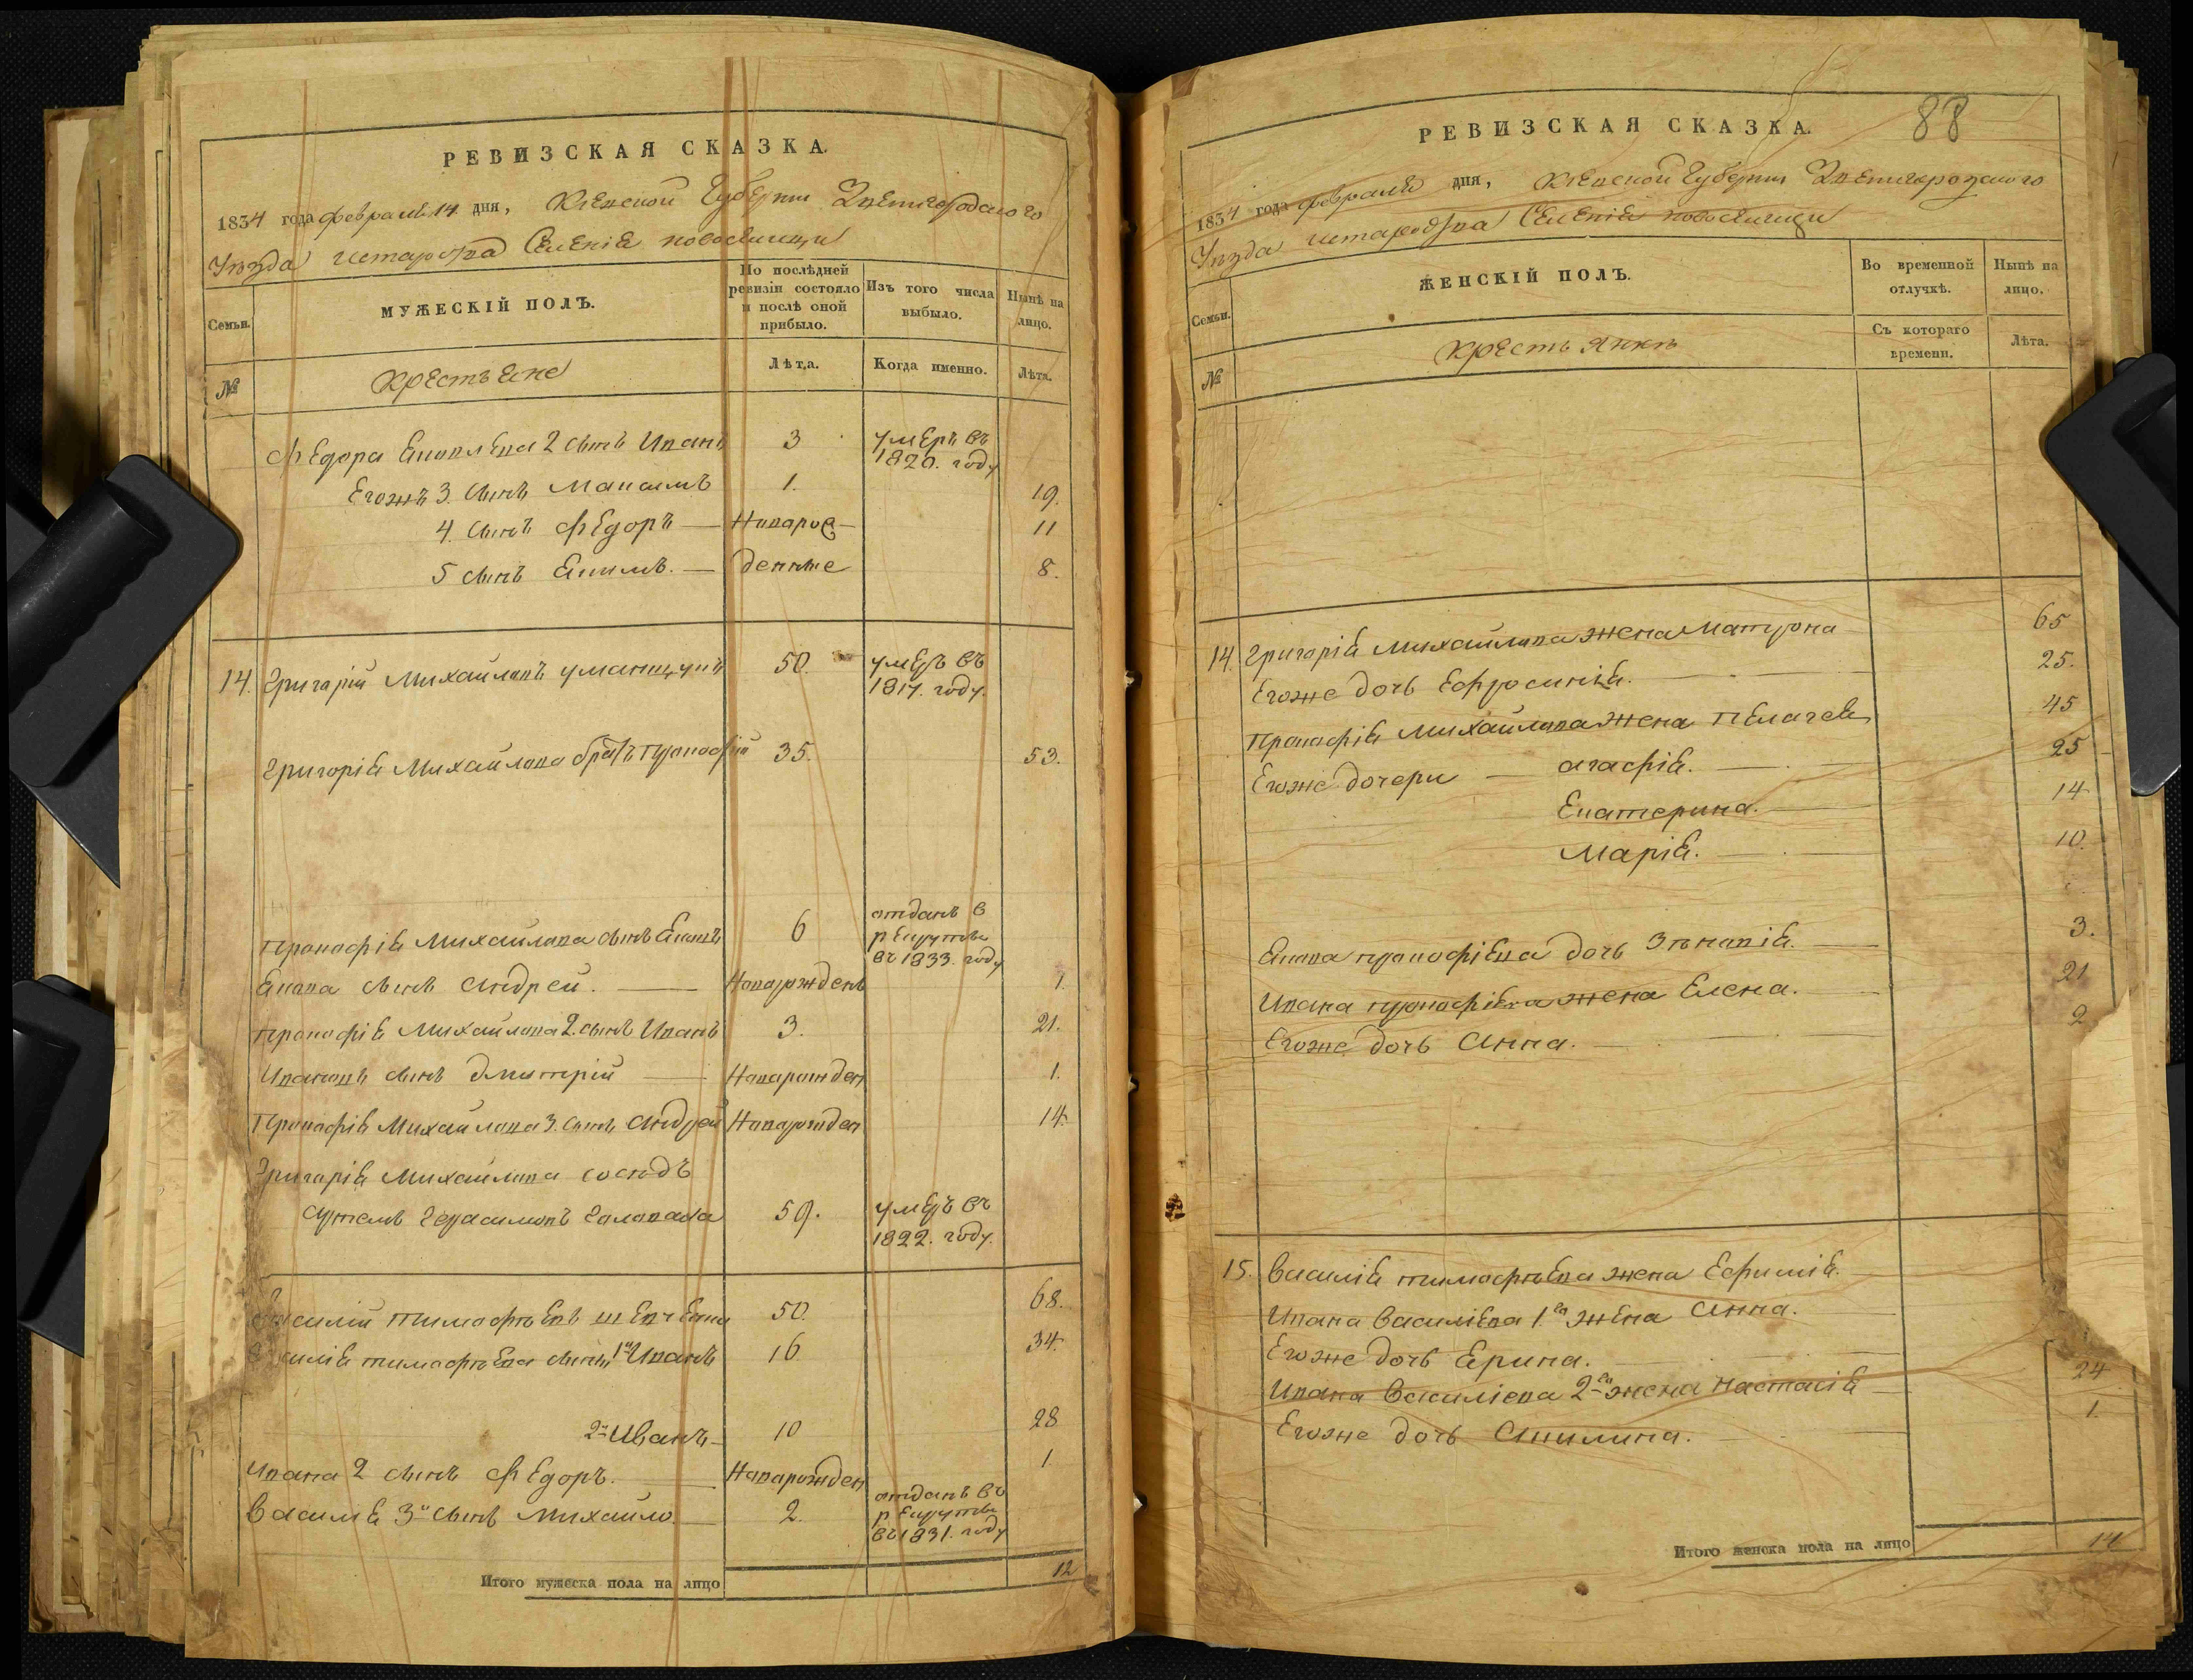 РЕВИЗСКАЯ СКАЗКА.
1834 года февраля 14 дня, Кіевской Губерніи Звенигородскаго
Уѣзда Селенія
Семьи.
МУЖЕСКІЙ ПОЛЪ.
По послѣдней ревизіи состояло и послѣ оной прибыло.
Изъ того числа выбыло.
Нынѣ на лицо.
№
Крестьяне
Лѣта.
Когда именно.
Лѣта.
Федора 2 сынъ Иванъ 3 умеръ въ 1820. году
Егожъ 3. сынъ Максимъ 1. 19.
4. сынъ Федоръ — Новорож- 11
5 сынъ Екимъ. — денные 8.
14. Григорій Михайловъ 50. умеръ въ 1817. году.
Григорія Михайлова братъ Прокофій 35. 53.
Прокофія Михайлова сынъ 6 отданъ в рекруты въ 1833. году
сынъ Андрей. — Новорожденъ 1.
Прокофія Михайлова 2. сынъ Иванъ 3. 21.
Ивановъ сынъ Дмитрій — Новорожден 1.
Прокофія Михайлова 3. сынъ Андрей Новорожден 14.
Григорія Михайлова сосѣдъ
Герасимовъ 59. умеръ въ 1822. году.
Василій Тимофѣевъ 50. 68.
Василія Тимофѣева сынъ 1й Иванъ 16 34.
2й Иванъ — 10 28
Ивана 2 сынъ Федоръ. — Новорожден 1
Василія 3й сынъ Михайло. — 2. отданъ въ рекруты въ 1831. году
Итого мужеска пола на лицо 12
88
РЕВИЗСКАЯ СКАЗКА.
1834 года февраля дня, Кіевской Губерніи Звенигородскаго
Уѣзда Селенія
Семьи.
ЖЕНСКІЙ ПОЛЪ.
Во временной отлучкѣ.
Нынѣ на лицо.
№
Крестьянки
Съ котораго времени.
Лѣта.
14. Григорія Михайлова жена Матрона 65
Егоже дочь Ефросинія. — 25.
Прокофія Михайлова жена Пелагея 45
Егоже дочери — Агафія. — 25
Екатерина. — 14
Марія. — 10.
Прокофіева дочь Зѣновія. — 3.
Ивана Прокофіева жена Елена. — 21
Егоже дочь Анна. — 2
15. Василія Тимофѣева жена Ефимія.
Ивана Василіева 1.я жена Анна. —
Егоже дочь Ерина. —
Ивана Василіева 2я жена Настасія — 24
Егоже дочь Акилина. — 1.
Итого женска пола на лицо 14